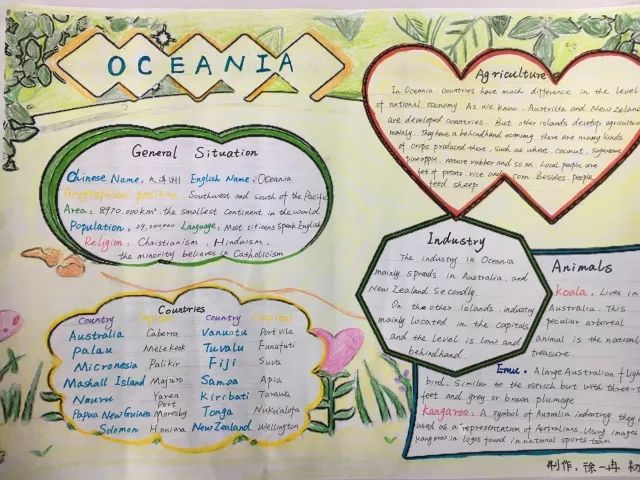 OCEANIA
General Situation
Chinese Name: 大洋洲 English Name: Oceania
Geographical position: Southwest and south of the Pacific
Area: 8970,000km² the smallest continent in the world
Population: 29,000000 Language: Most citizens speak English
Religion: Christianism, Hinduism,
the minority believes in Catholicism
Countries
Country Capital Country Capital
Australia Caberra Vanuatu Port Vila
Palau Melekeok Tuvalu Funafuti
Micronesia Palikir Fiji Suva
Mashall Island Majuro Samoa Apia
Nauru Yaren Kiribati Tarawa
Papua New Guinea Port Moresby Tonga Nukualofa
Solomon Honiara New Zealand Wellington
Agriculture
In Oceania countries have much difference in the level
of national economy. As we know, Austrilta and New Zeland
are developed contries. But other islands develop agricultu
mainly. They have a behindhand economy. there are many kinds
of crops produced there, such as wheat, coconut, sugarcane
pineapple, nature rubber and so on. Local people
of potato, rice and corn. Besides, people
feed sheep
Industry
The industry in Oceania
mainly spreads in Australia, and
New Zealand Secondly.
On the other Islands, industry
mainly located in the capitals
and the level is low and
behindhand.
Animals
koala. Lives in
Australia. This
peculiar arboreal
animal is the national
treasure.
Emu. A large Australian flightl
bird. Similar to the ostrich but with three-t
feet and grey or brown plumage
Kangaroo: A symbol of Autralia indentiny they
used as a representation of Australians. Using images
kangroo in logos found in national sports team.
制作: 徐一冉 初